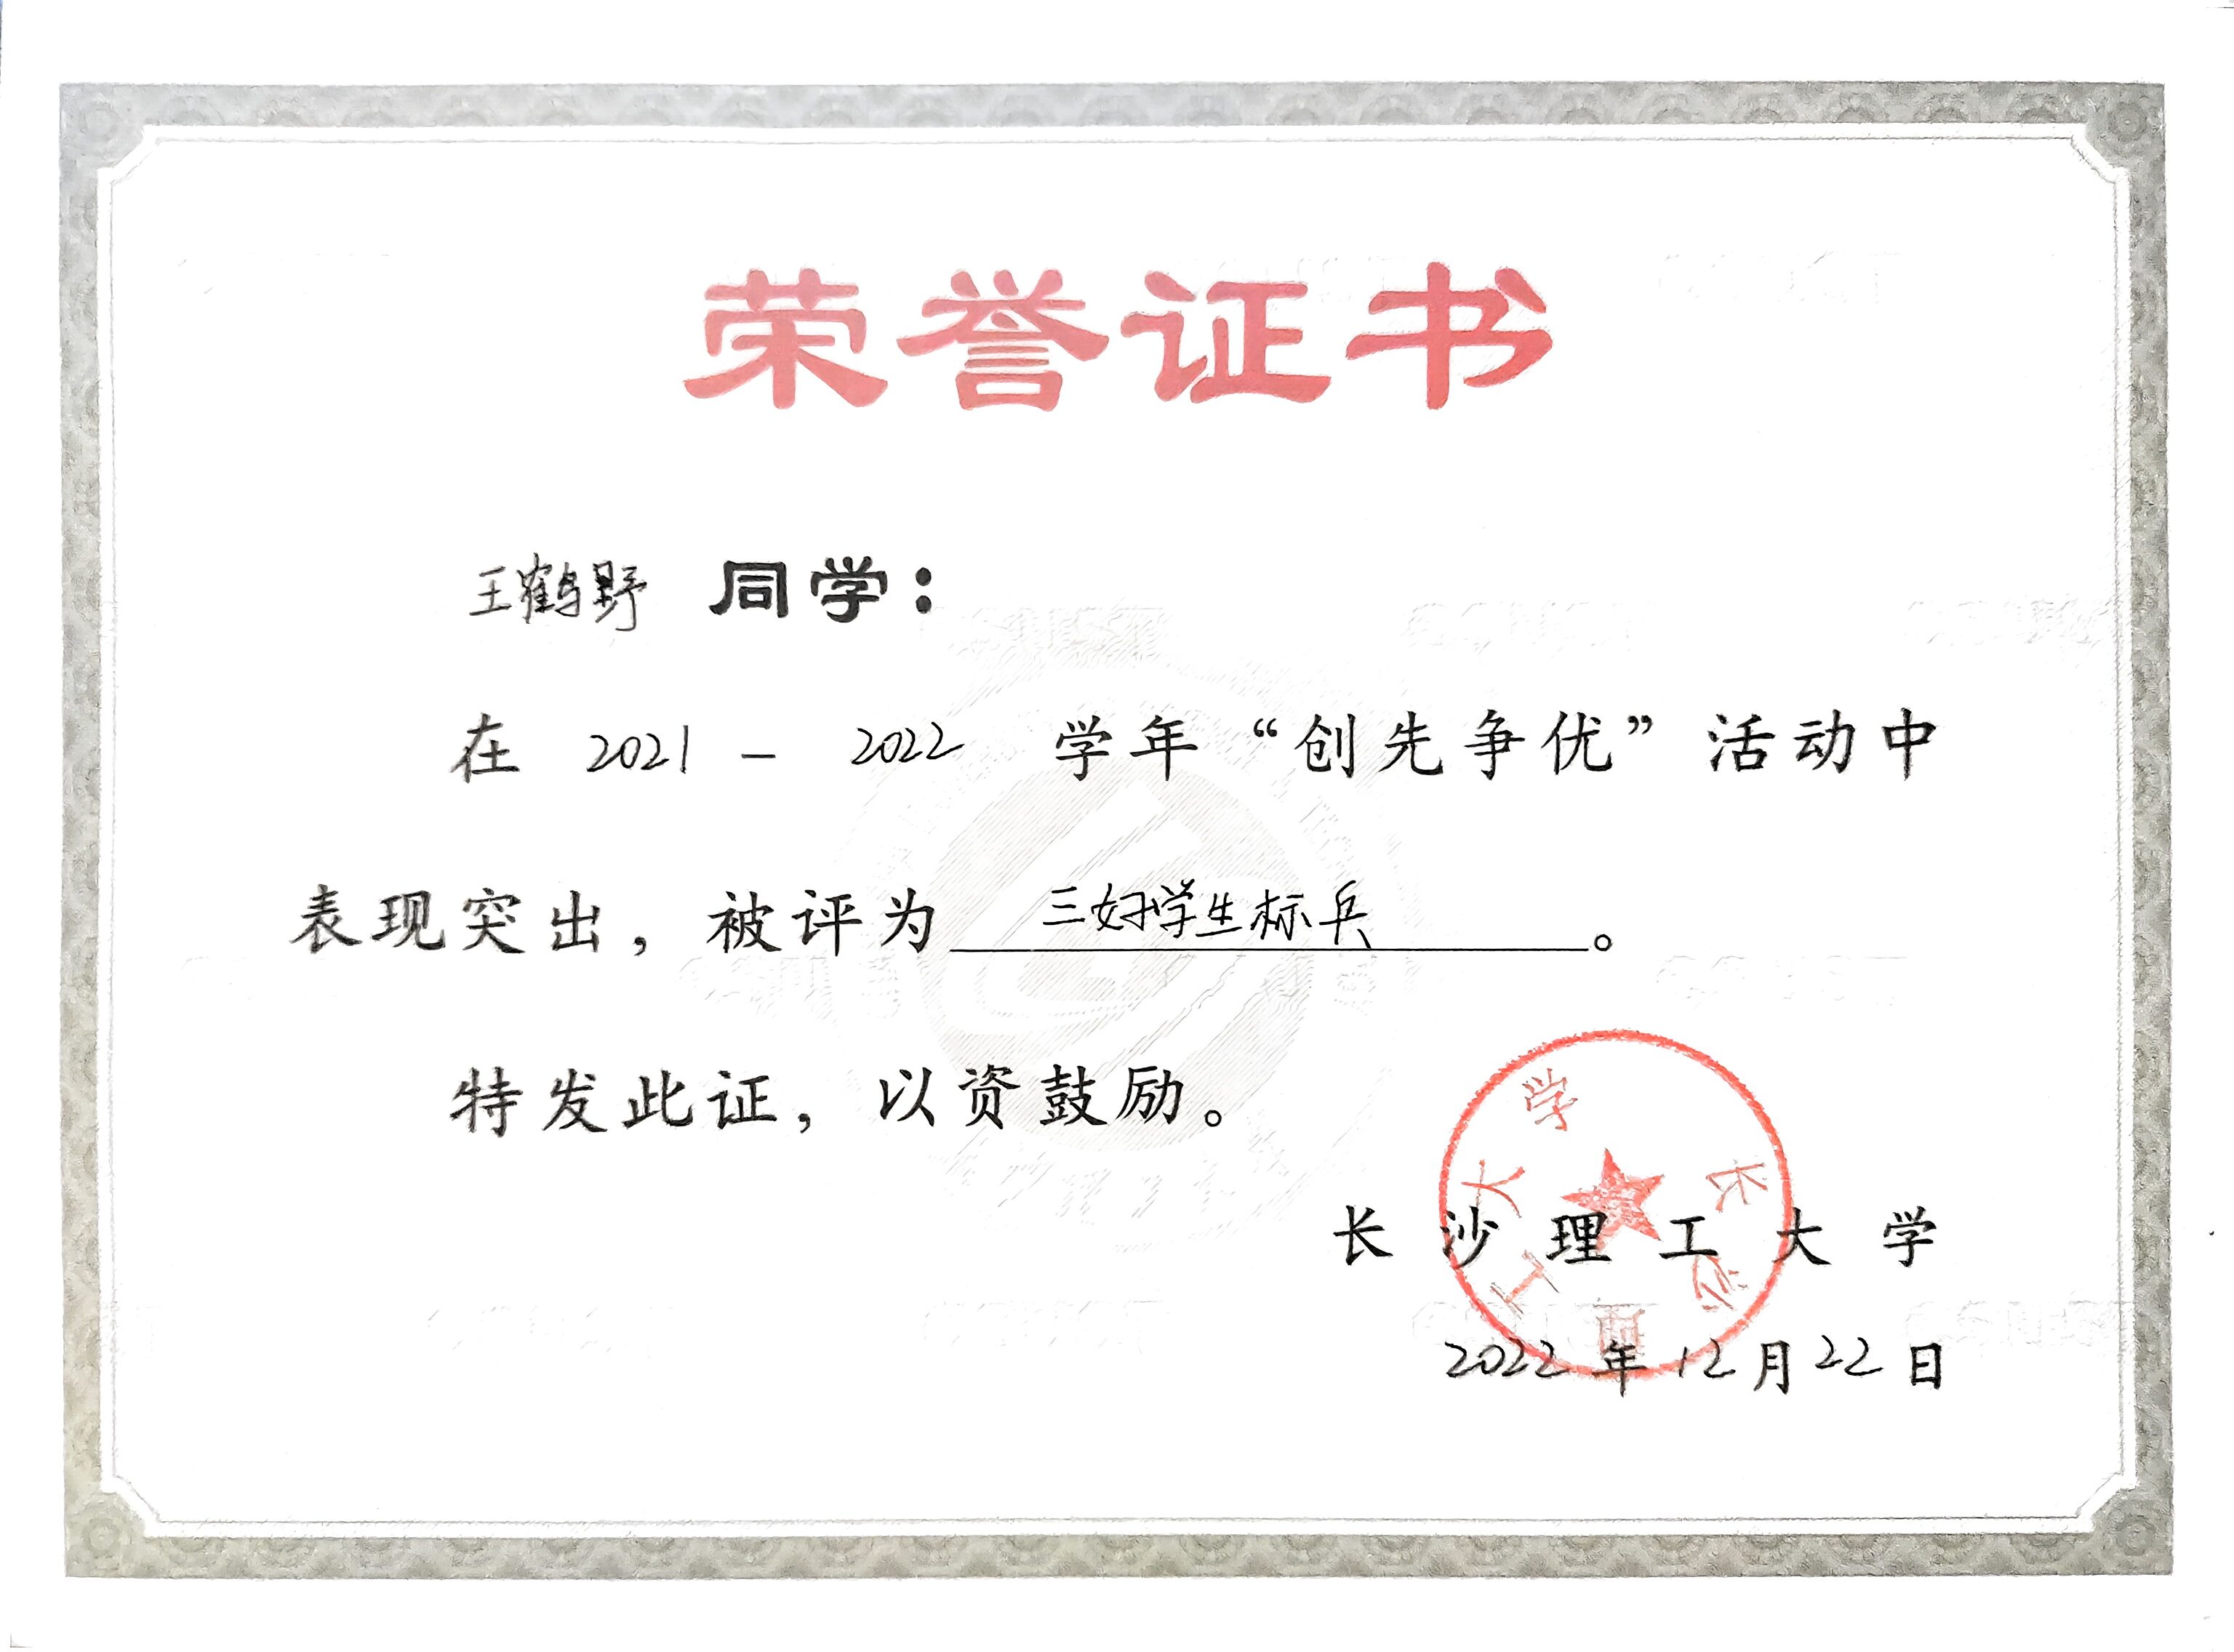 荣誉证书
王鹤野 同学：
在 2021 - 2022 学年“创先争优”活动中
表现突出，被评为 三好学生标兵 。
特发此证，以资鼓励。
长沙理工大学
2022 年 12 月 22 日
长沙理工大学
CSUST